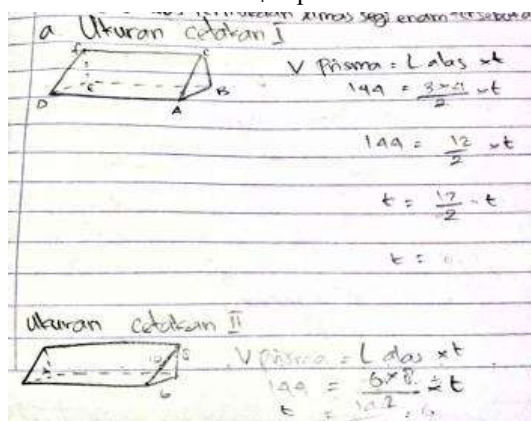 segi enam tersebut
a Ukuran cetakan I
F C
E B
D A
V Prisma = L alas x t
144 = 3 x 4 / 2 x t
144 = 12 / 2 x t
t = 12 / 2 - t
t =
Ukuran cetakan II
10 8
6
V Prisma = L alas x t
144 = 6 x 8 / 2 x t
t =